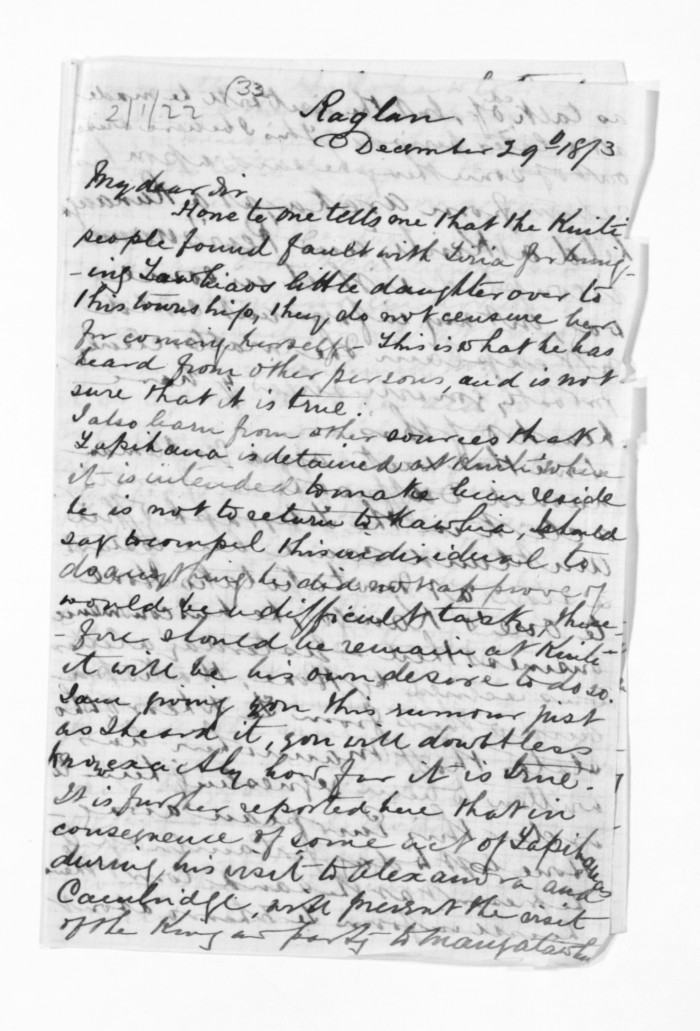 2/1/22 (33
Raglan
December 29th 1873
My dear Sir
Hone te One tells me that the Kuiti
people found fault with Liria for bring
-ing Tawhiaos little daughter over to
this township, they do not censure her
for coming herself - This is what he has
heard from other persons, and is not
sure that it is true.
I also learn from other sources that
Tapihana is detained at Kuiti where
it is intended to make him reside
he is not to return to Kawhia, I should
say to compel this individual to
do anything he did not approve of
would be a difficult task, there-
-fore should he remain at Kuiti
it will be his own desire to do so.
I am giving you this rumour just
as I heard it, you will doubtless
know exactly how far it is true.
It is further reported here that in
consequence of some act of Tapihanas
during his visit to Alexandra and
Cambridge, will prevent the visit
of the King or party to Maungatawhiri